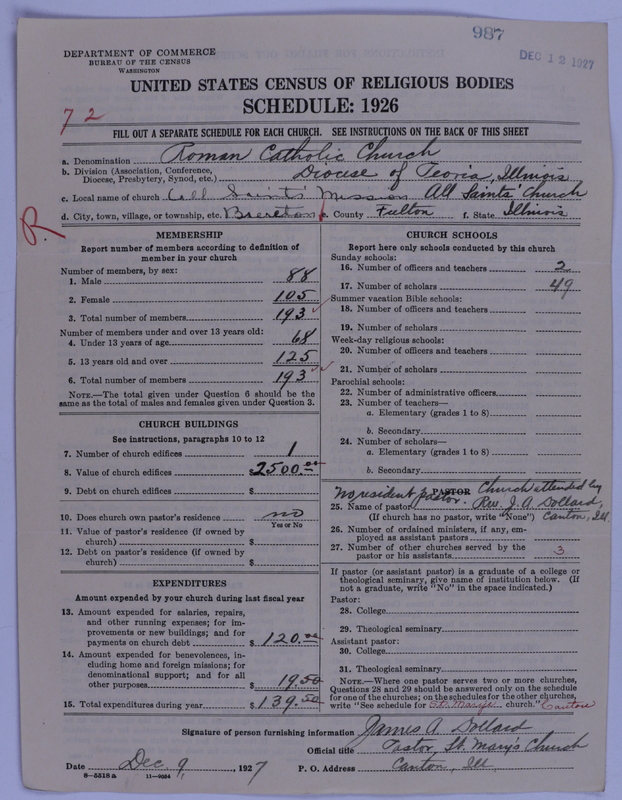 987
DEC 12 1927
DEPARTMENT OF COMMERCE
BUREAU OF THE CENSUS
WASHINGTON
UNITED STATES CENSUS OF RELIGIOUS BODIES
SCHEDULE: 1926
72
FILL OUT A SEPARATE SCHEDULE FOR EACH CHURCH. SEE INSTRUCTIONS ON THE BACK OF THIS SHEET
a. Denomination Roman Catholic Church
b. Division (Association, Conference, Diocese, Presbytery, Synod, etc.) Diocese of Peoria, Illinois
c. Local name of church All Saints' Mission All Saints' Church
d. City, town, village, or township, etc. Brereton e. County Fulton f. State Illinois
R.
MEMBERSHIP
Report number of members according to definition of
member in your church
Number of members, by sex:
1. Male 88
2. Female 105
3. Total number of members 193
Number of members under and over 13 years old:
4. Under 13 years of age 68
5. 13 years old and over 125
6. Total number of members 193
NOTE.—The total given under Question 6 should be the
same as the total of males and females given under Question 3.
CHURCH BUILDINGS
See instructions, paragraphs 10 to 12
7. Number of church edifices 1
8. Value of church edifices $2500.00
9. Debt on church edifices $
10. Does church own pastor's residence no
Yes or No
11. Value of pastor's residence (if owned by
church) $
12. Debt on pastor's residence (if owned by
church) $
EXPENDITURES
Amount expended by your church during last fiscal year
13. Amount expended for salaries, repairs,
and other running expenses; for im-
provements or new buildings; and for
payments on church debt $ 120.00
14. Amount expended for benevolences, in-
cluding home and foreign missions; for
denominational support; and for all
other purposes $ 19.50
15. Total expenditures during year $ 139.50
CHURCH SCHOOLS
Report here only schools conducted by this church
Sunday schools:
16. Number of officers and teachers 2
17. Number of scholars 49
Summer vacation Bible schools:
18. Number of officers and teachers
19. Number of scholars
Week-day religious schools:
20. Number of officers and teachers
21. Number of scholars
Parochial schools:
22. Number of administrative officers
23. Number of teachers—
a. Elementary (grades 1 to 8)
b. Secondary
24. Number of scholars—
a. Elementary (grades 1 to 8)
b. Secondary
PASTOR
No resident pastor. Church attended by
25. Name of pastor Rev. J. A. Dollard,
(If church has no pastor, write "None") Canton, Ill.
26. Number of ordained ministers, if any, em-
ployed as assistant pastors
27. Number of other churches served by the
pastor or his assistants 3
If pastor (or assistant pastor) is a graduate of a college or
theological seminary, give name of institution below. (If
not a graduate, write "No" in the space indicated.)
Pastor:
28. College
29. Theological seminary
Assistant pastor:
30. College
31. Theological seminary
NOTE.—Where one pastor serves two or more churches,
Questions 28 and 29 should be answered only on the schedule
for one of the churches; on the schedules for the other churches,
write "See schedule for St. Marys church." Canton
Signature of person furnishing information James A. Dollard
Official title Pastor, St. Mary's Church
Date Dec 9, 1927 P. O. Address Canton, Ill.
8—5518 a 11—9034